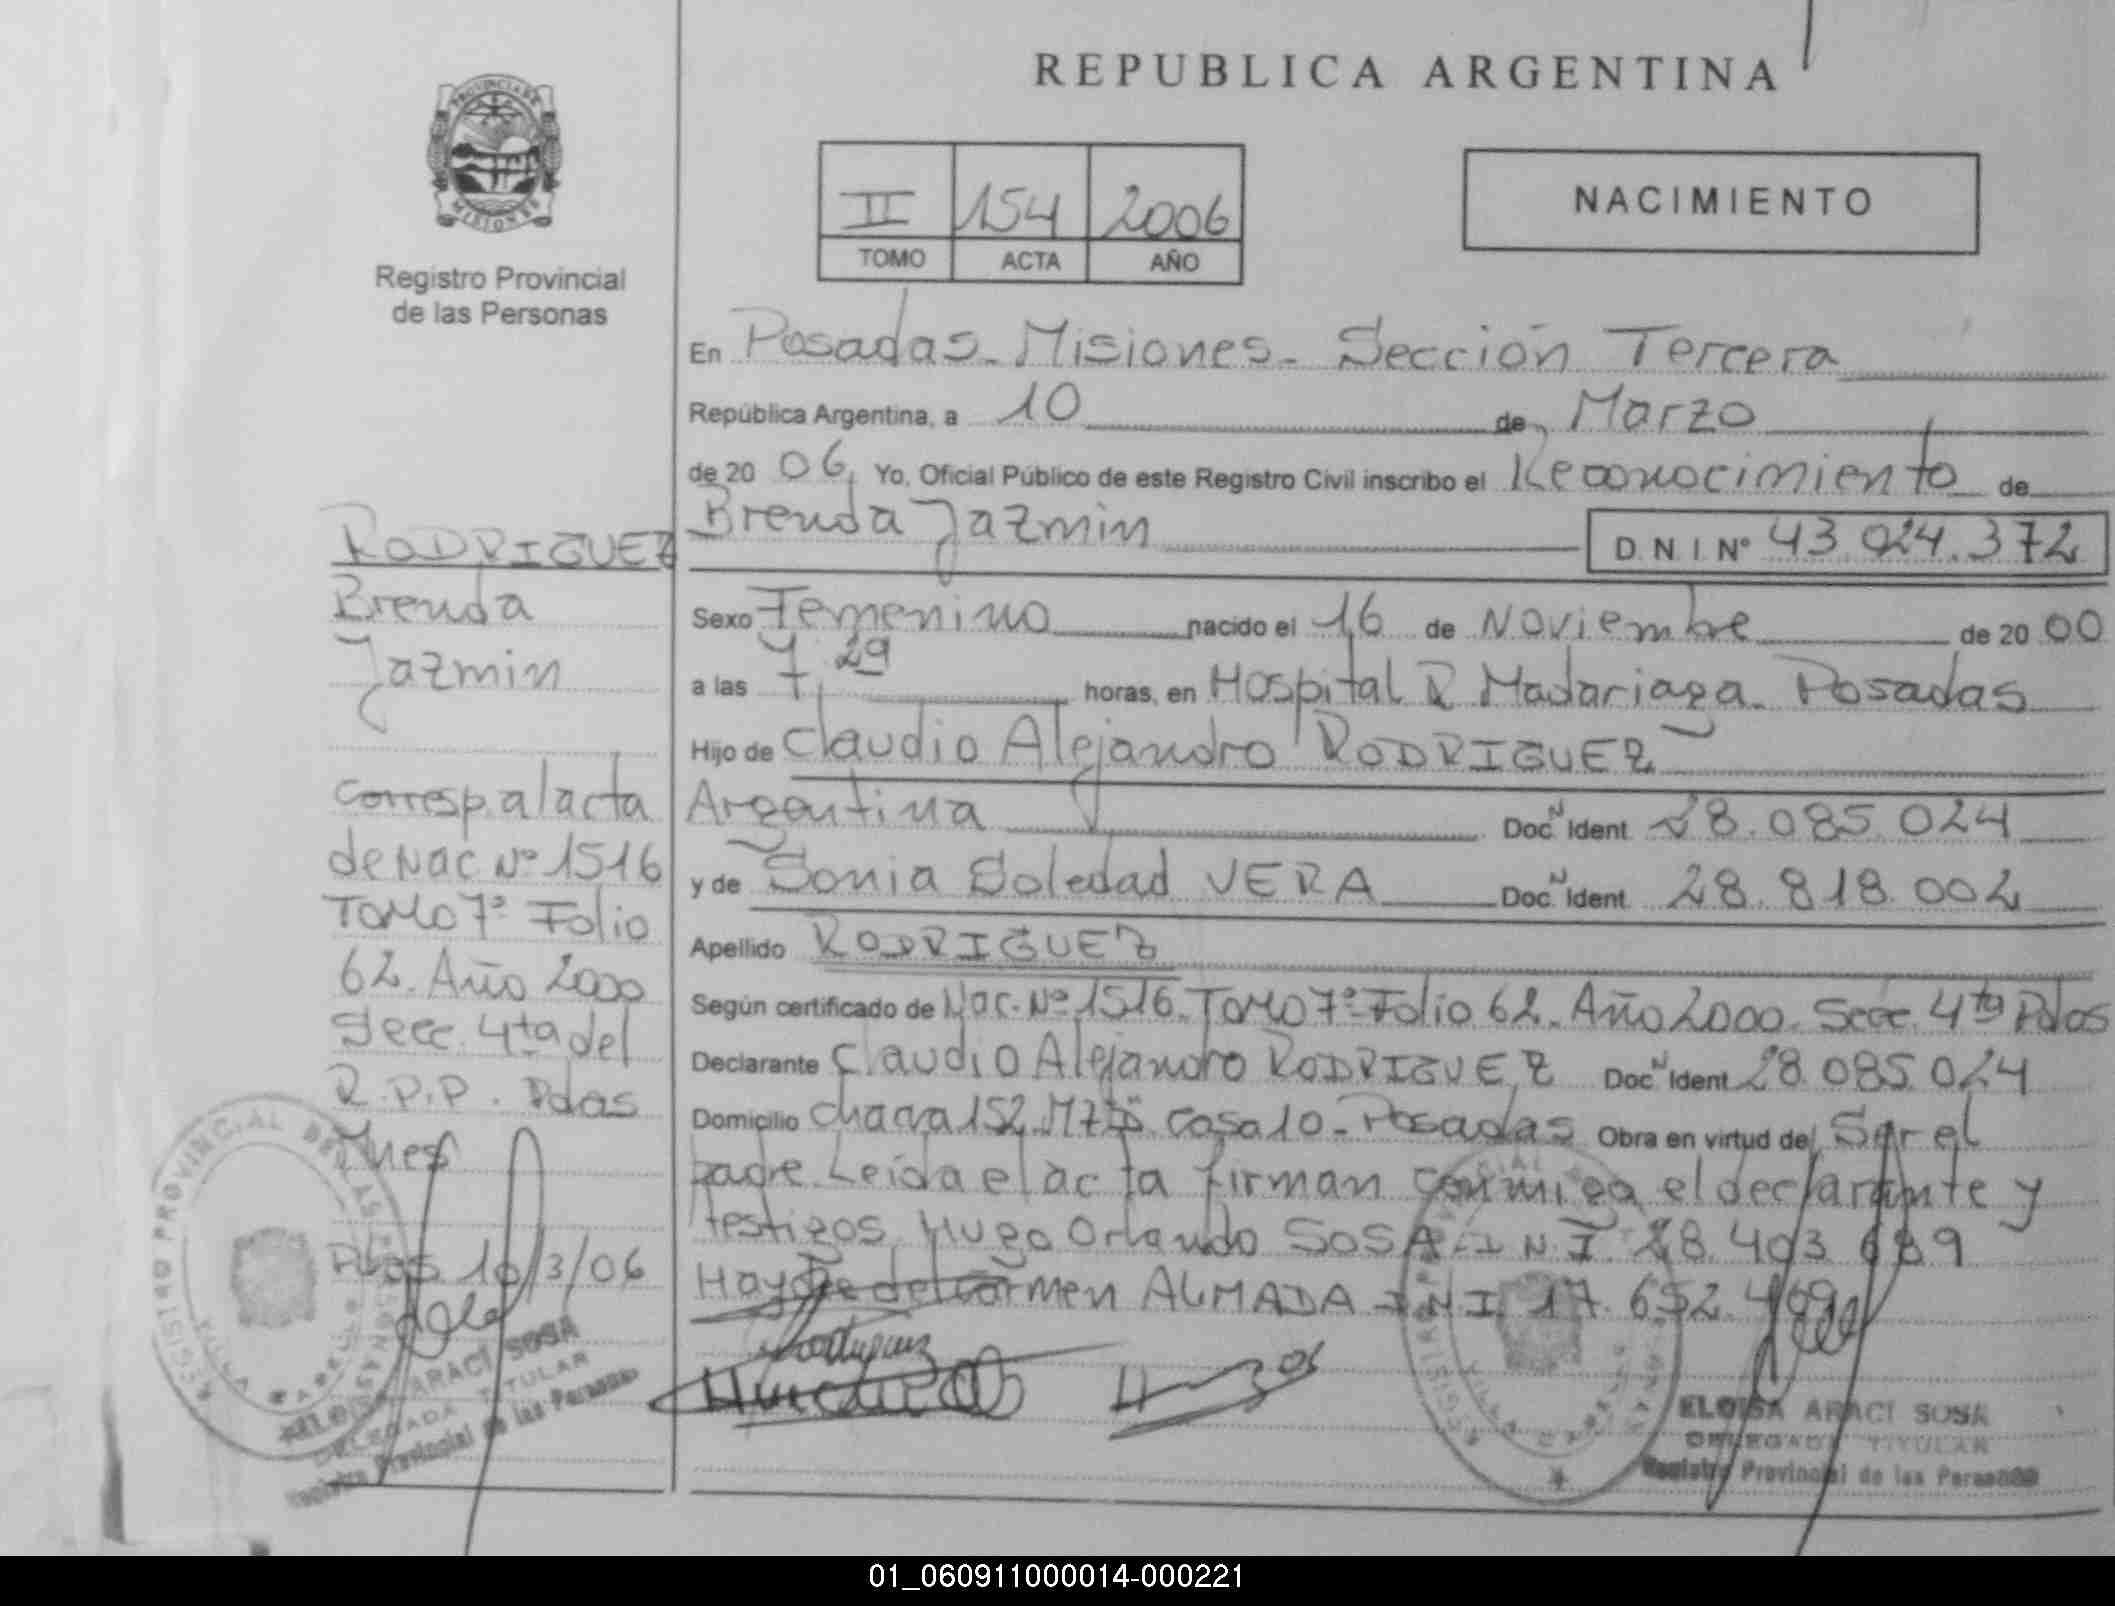 REPUBLICA ARGENTINA
PROVINCIA DE
MISIONES
Registro Provincial
de las Personas
II 154 2006
TOMO ACTA AÑO
NACIMIENTO
En Posadas - Misiones - Sección Tercera
República Argentina, a 10 de Marzo
de 20 06, Yo, Oficial Público de este Registro Civil inscribo el Reconocimiento de
Brenda Jazmin D.N.I. Nº 43.024.372
Sexo Femenino nacido el 16 de Noviembre de 20 00
a las 7,29 horas, en Hospital R Madariaga - Posadas
Hijo de Claudio Alejandro RODRIGUEZ
Argentina Doc.N Ident 28.085.024
y de Sonia Soledad VERA Doc.N Ident 28.818.002
Apellido RODRIGUEZ
Según certificado de Nac. Nº 1516 - Tomo 7º Folio 62 - Año 2000 - Secc. 4ta Pdas
Declarante Claudio Alejandro RODRIGUEZ Doc.N Ident 28.085.024
Domicilio chacra 152 casa 10 - Posadas Obra en virtud de Ser el
padre. Leída el acta firman conmigo el declarante y
testigos, Hugo Orlando SOSA - I N.I 28.403.689
Haydee del Carmen ALMADA - I.N.I. 17.652.469
RODRIGUEZ
Brenda
Jazmin
Corresp. al acta
de Nac Nº 1516
Tomo 7º Folio
62. Año 2000
Secc. 4ta del
R.P.P. Pdas
Mnes
Pdas 10/3/06
REGISTRO PROVINCIAL DE LAS PERSONAS
VILLA CABELLO
ELOISA ARACI SOSA
DELEGADA TITULAR
Registro Provincial de las Personas
ELOISA ARACI SOSA
DELEGADA TITULAR
Registro Provincial de las Personas
01_060911000014-000221